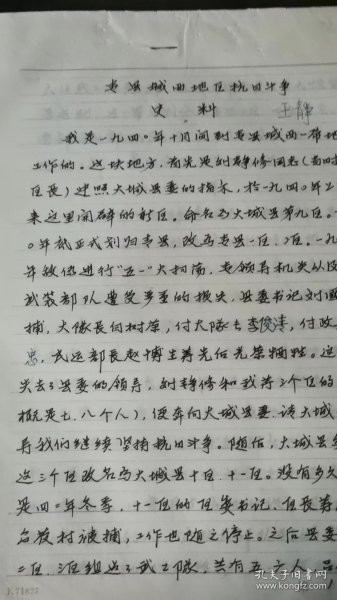 一
专县城西地区抗日斗争
史 料 王静
我是一九四〇年十月间到专县城西一带地
工作的。这块地方,首先是刘静修同志(当时
区长)遵照大城县委的指示,于一九四〇年上
来这里开辟的新区。命名为大城县第九区。一
〇年就正式划归专县,改为专县一区、二区。一九
年敌伪进行"五一"大扫荡,专领导机关从及
武装部队遭受严重的损失,县委书记刘
捕,大队长何树荣,付大队长李俊清,付政
忠,武运部长赵博生等先后光荣牺牲。这
失去了县委的领导,刘静修和我等三个区的
概是七、八个人),便奔向大城县委,请大城
导我们继续坚持抗日斗争。随后,大城县
这三个区改名为大城县十区、十一区。没有多久
是四二年冬季,十一区的区委书记、区长等
各被村被捕,工作也随之停止。之后县委
二区、三区组成了武工队,共有五、六人,
K71827
孔夫子旧书网